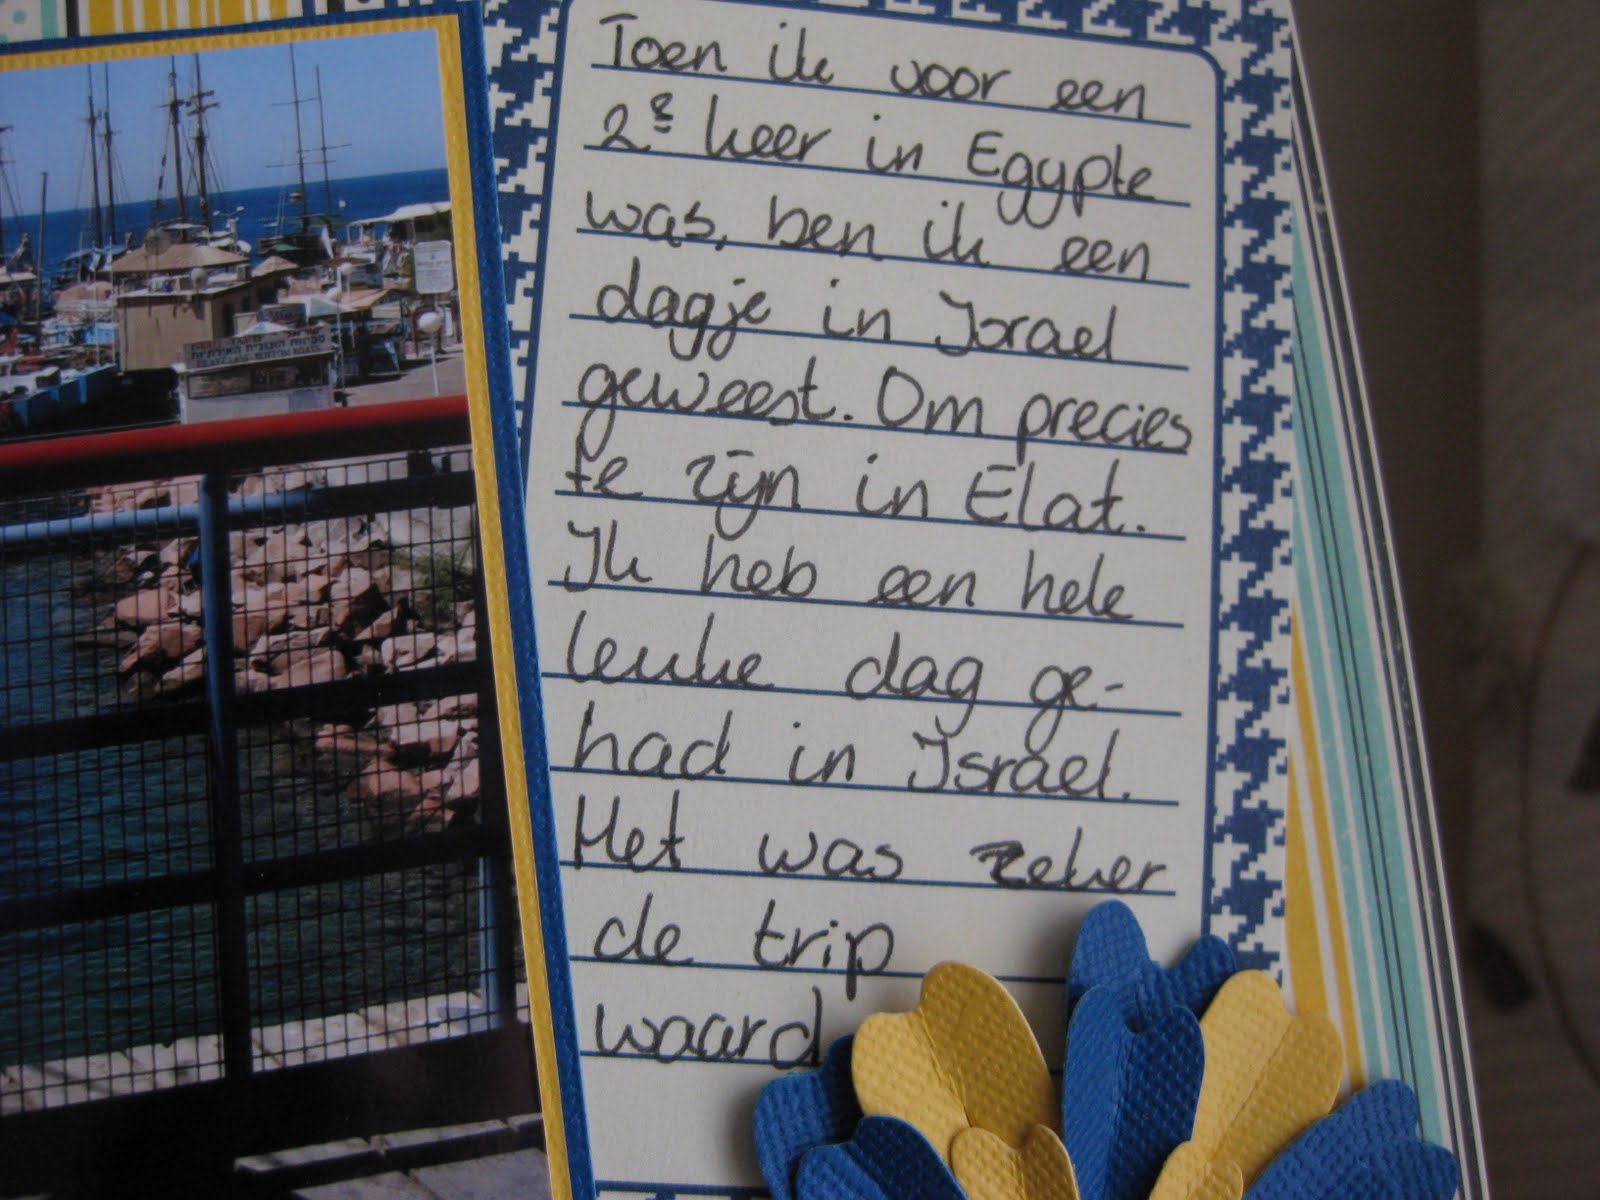 Toen ik voor een
2e keer in Egypte
was, ben ik een
dagje in Israel
geweest. Om precies
te zijn in Elat.
Ik heb een hele
leuke dag ge-
had in Israel.
Het was zeker
de trip
waard